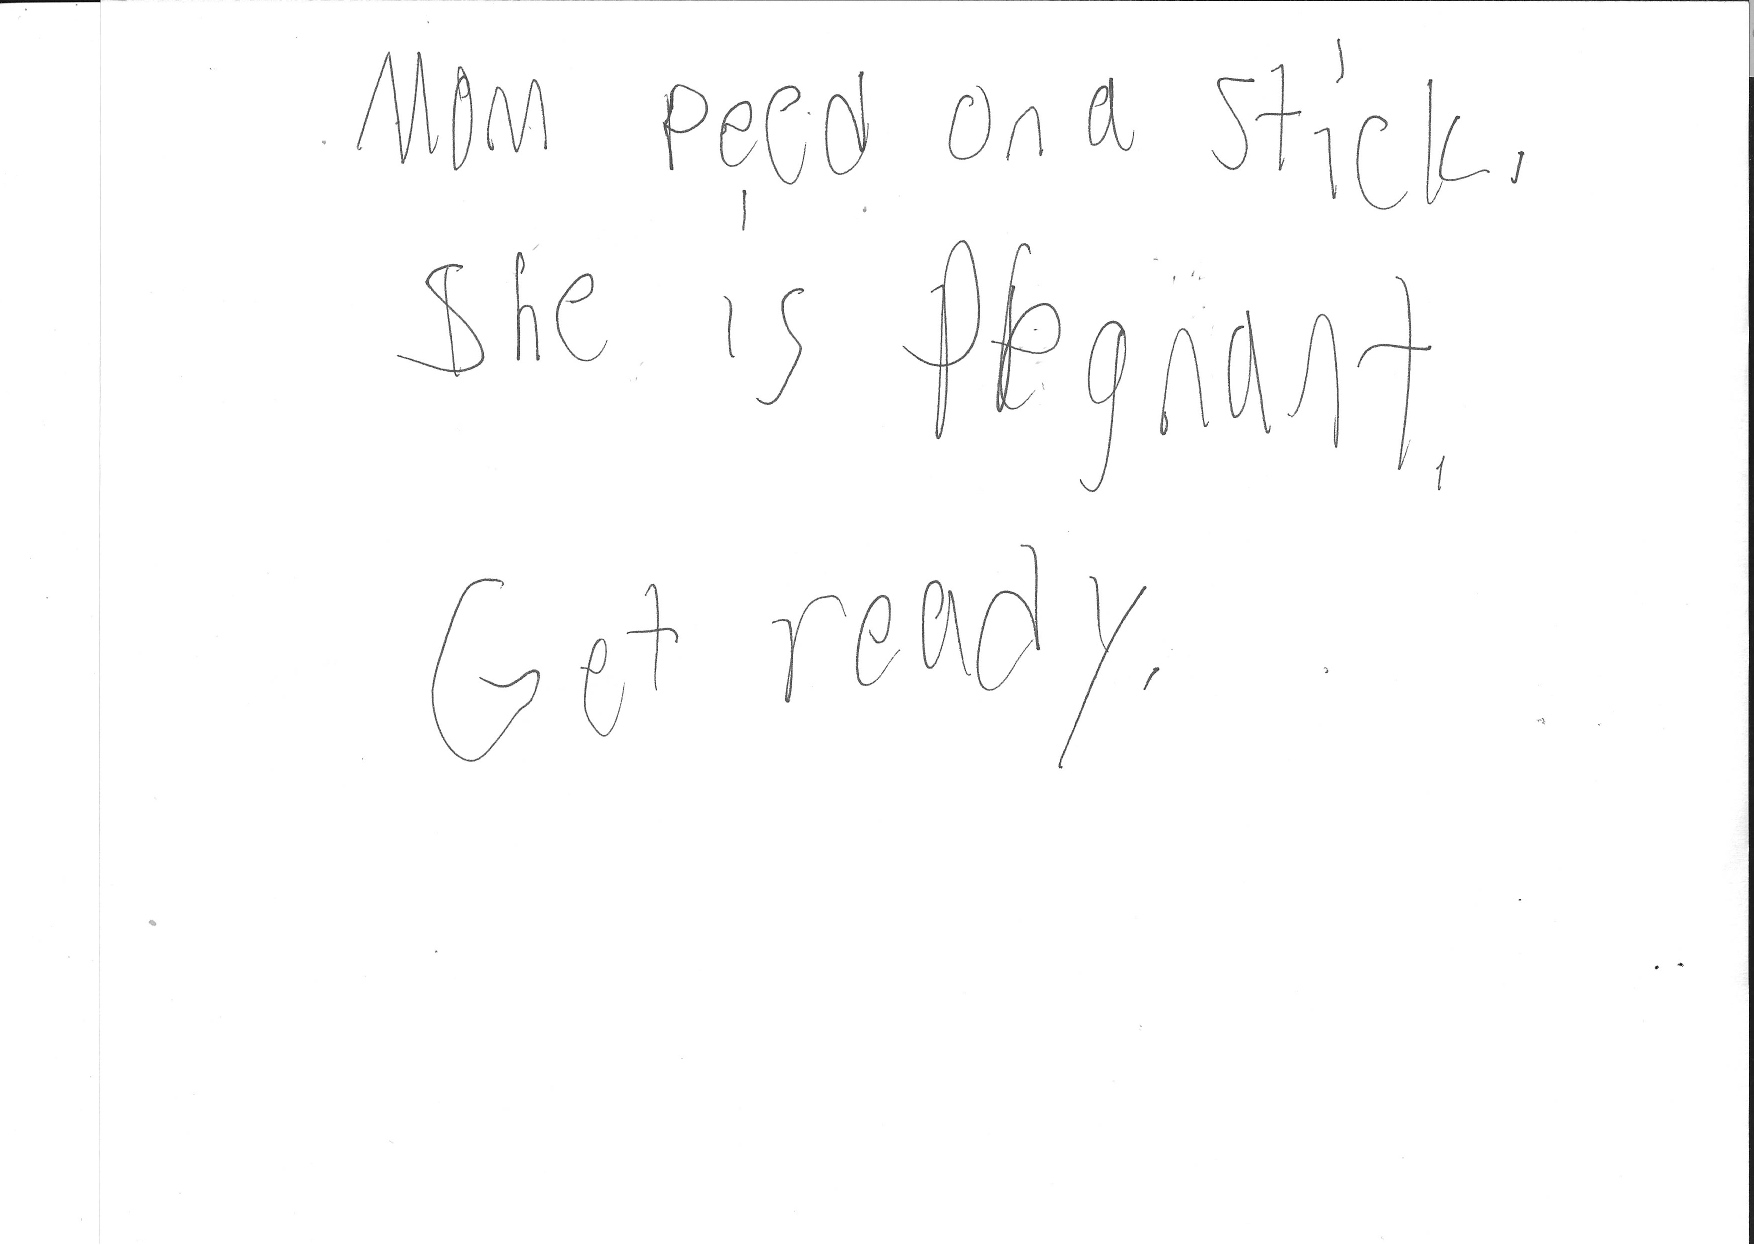 Mom peed on a stick.
She is Pregnant.
Get ready.